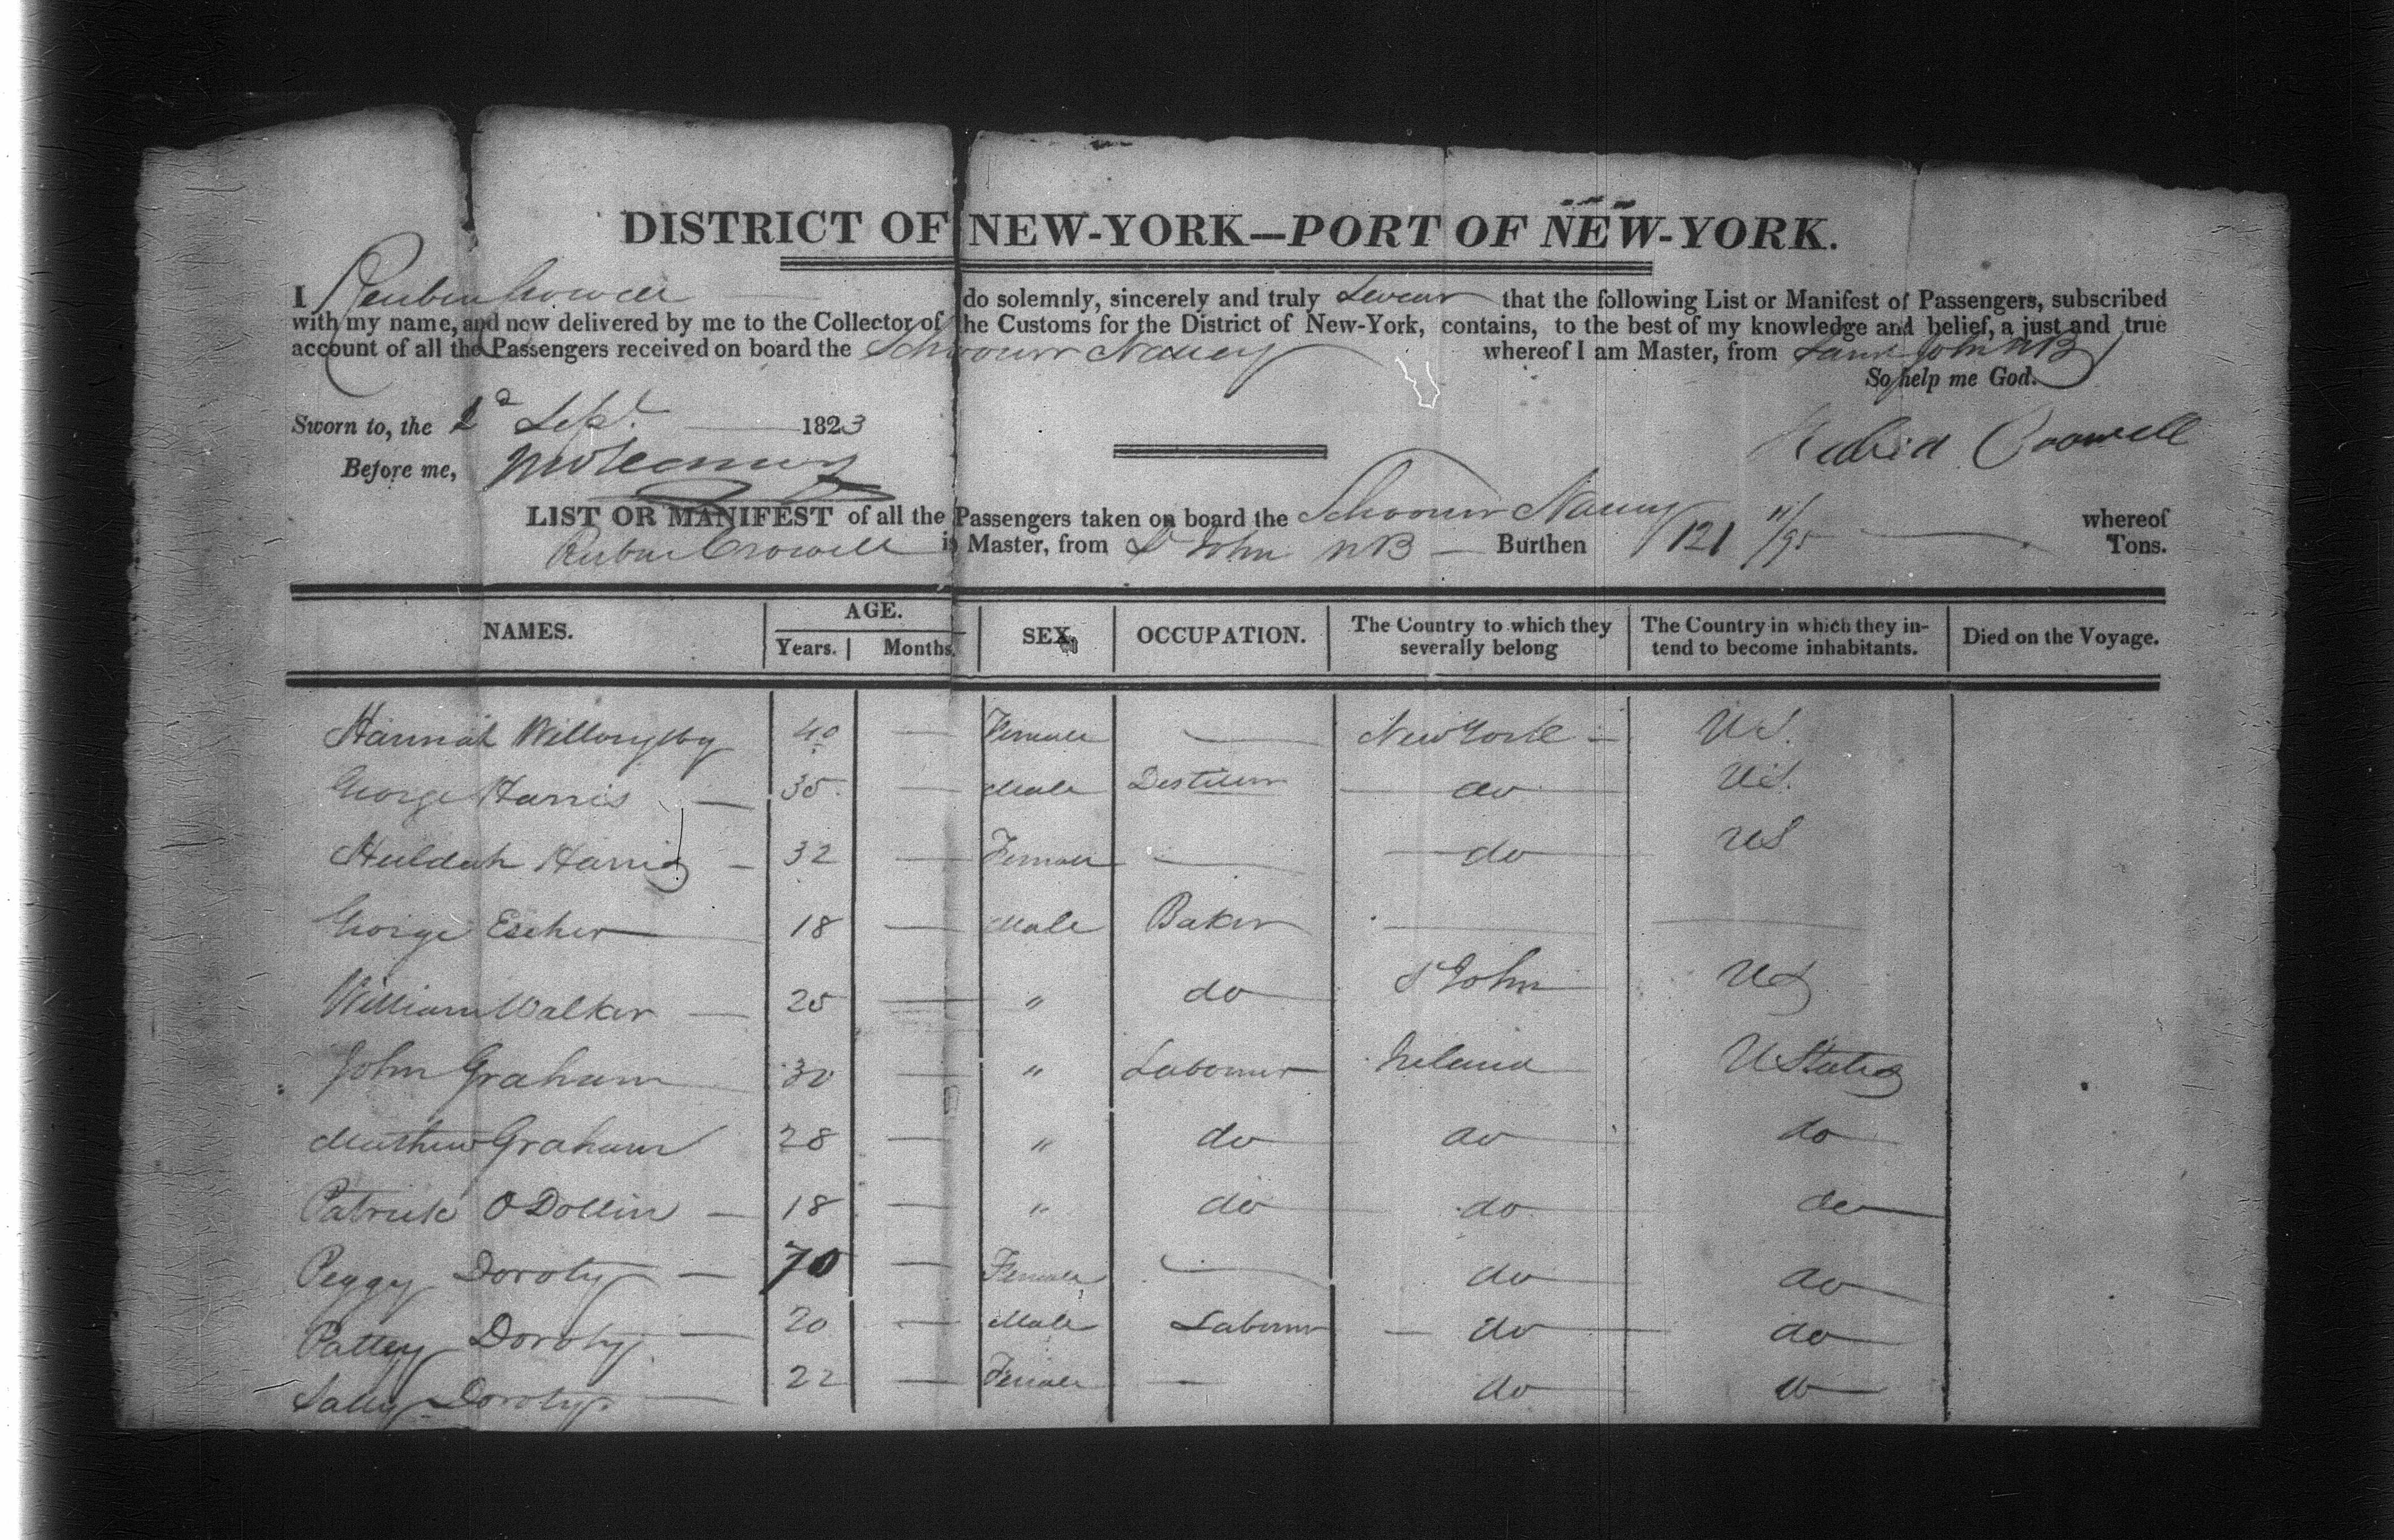 DISTRICT OF NEW-YORK—PORT OF NEW-YORK.
I Reuben Crowell do solemnly, sincerely and truly Swear that the following List or Manifest of Passengers, subscribed
with my name, and now delivered by me to the Collector of the Customs for the District of New-York, contains, to the best of my knowledge and belief, a just and true
account of all the Passengers received on board the Schooner Nancy whereof I am Master, from Saint John NB
So help me God.
Sworn to, the 2d Sept. 1823
Before me,
Crowell
LIST OR MANIFEST of all the Passengers taken on board the Schooner Nancy whereof
Reuben Crowell is Master, from St John NB — Burthen 121 11/95 Tons.
NAMES. AGE. Years. Months. SEX. OCCUPATION. The Country to which they severally belong The Country in which they intend to become inhabitants. Died on the Voyage.
Hannah Willougby 40 — Female — New York — US.
George Harris — 35 — Male Distiller do US.
Huldah Harris — 32 — Female — do US
George Escher 18 — Male Baker — —
William Walker — 25 — " do St John US
John Graham 30 — " Labourer Ireland U States
Mathew Graham 28 — " do do do
Patrick O Dollin — 18 — " do do do
Peggy Doroty — 70 — Female — do do
Pattey Doroty — 20 — Male Labourer — do do
Sally Doroty — 22 — Female — do do